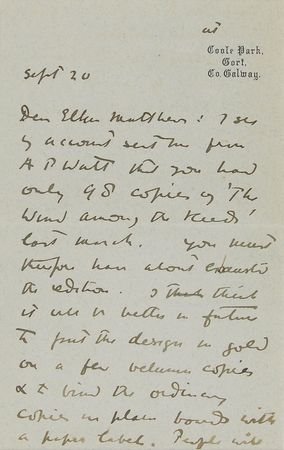 at
Coole Park,
Gort,
Co. Galway.
Sept 20
Dear Elkin Matthews: I see
by account sent me from
A P Watt that you had
only 98 copies of 'The
Wind among the Reeds'
last March. You must
therefore have about exhausted
the edition. I think
it will be better in future
to put the design in gold
on a few vellum copies
& to bind the ordinary
copies in plain boards with
a paper label. People will